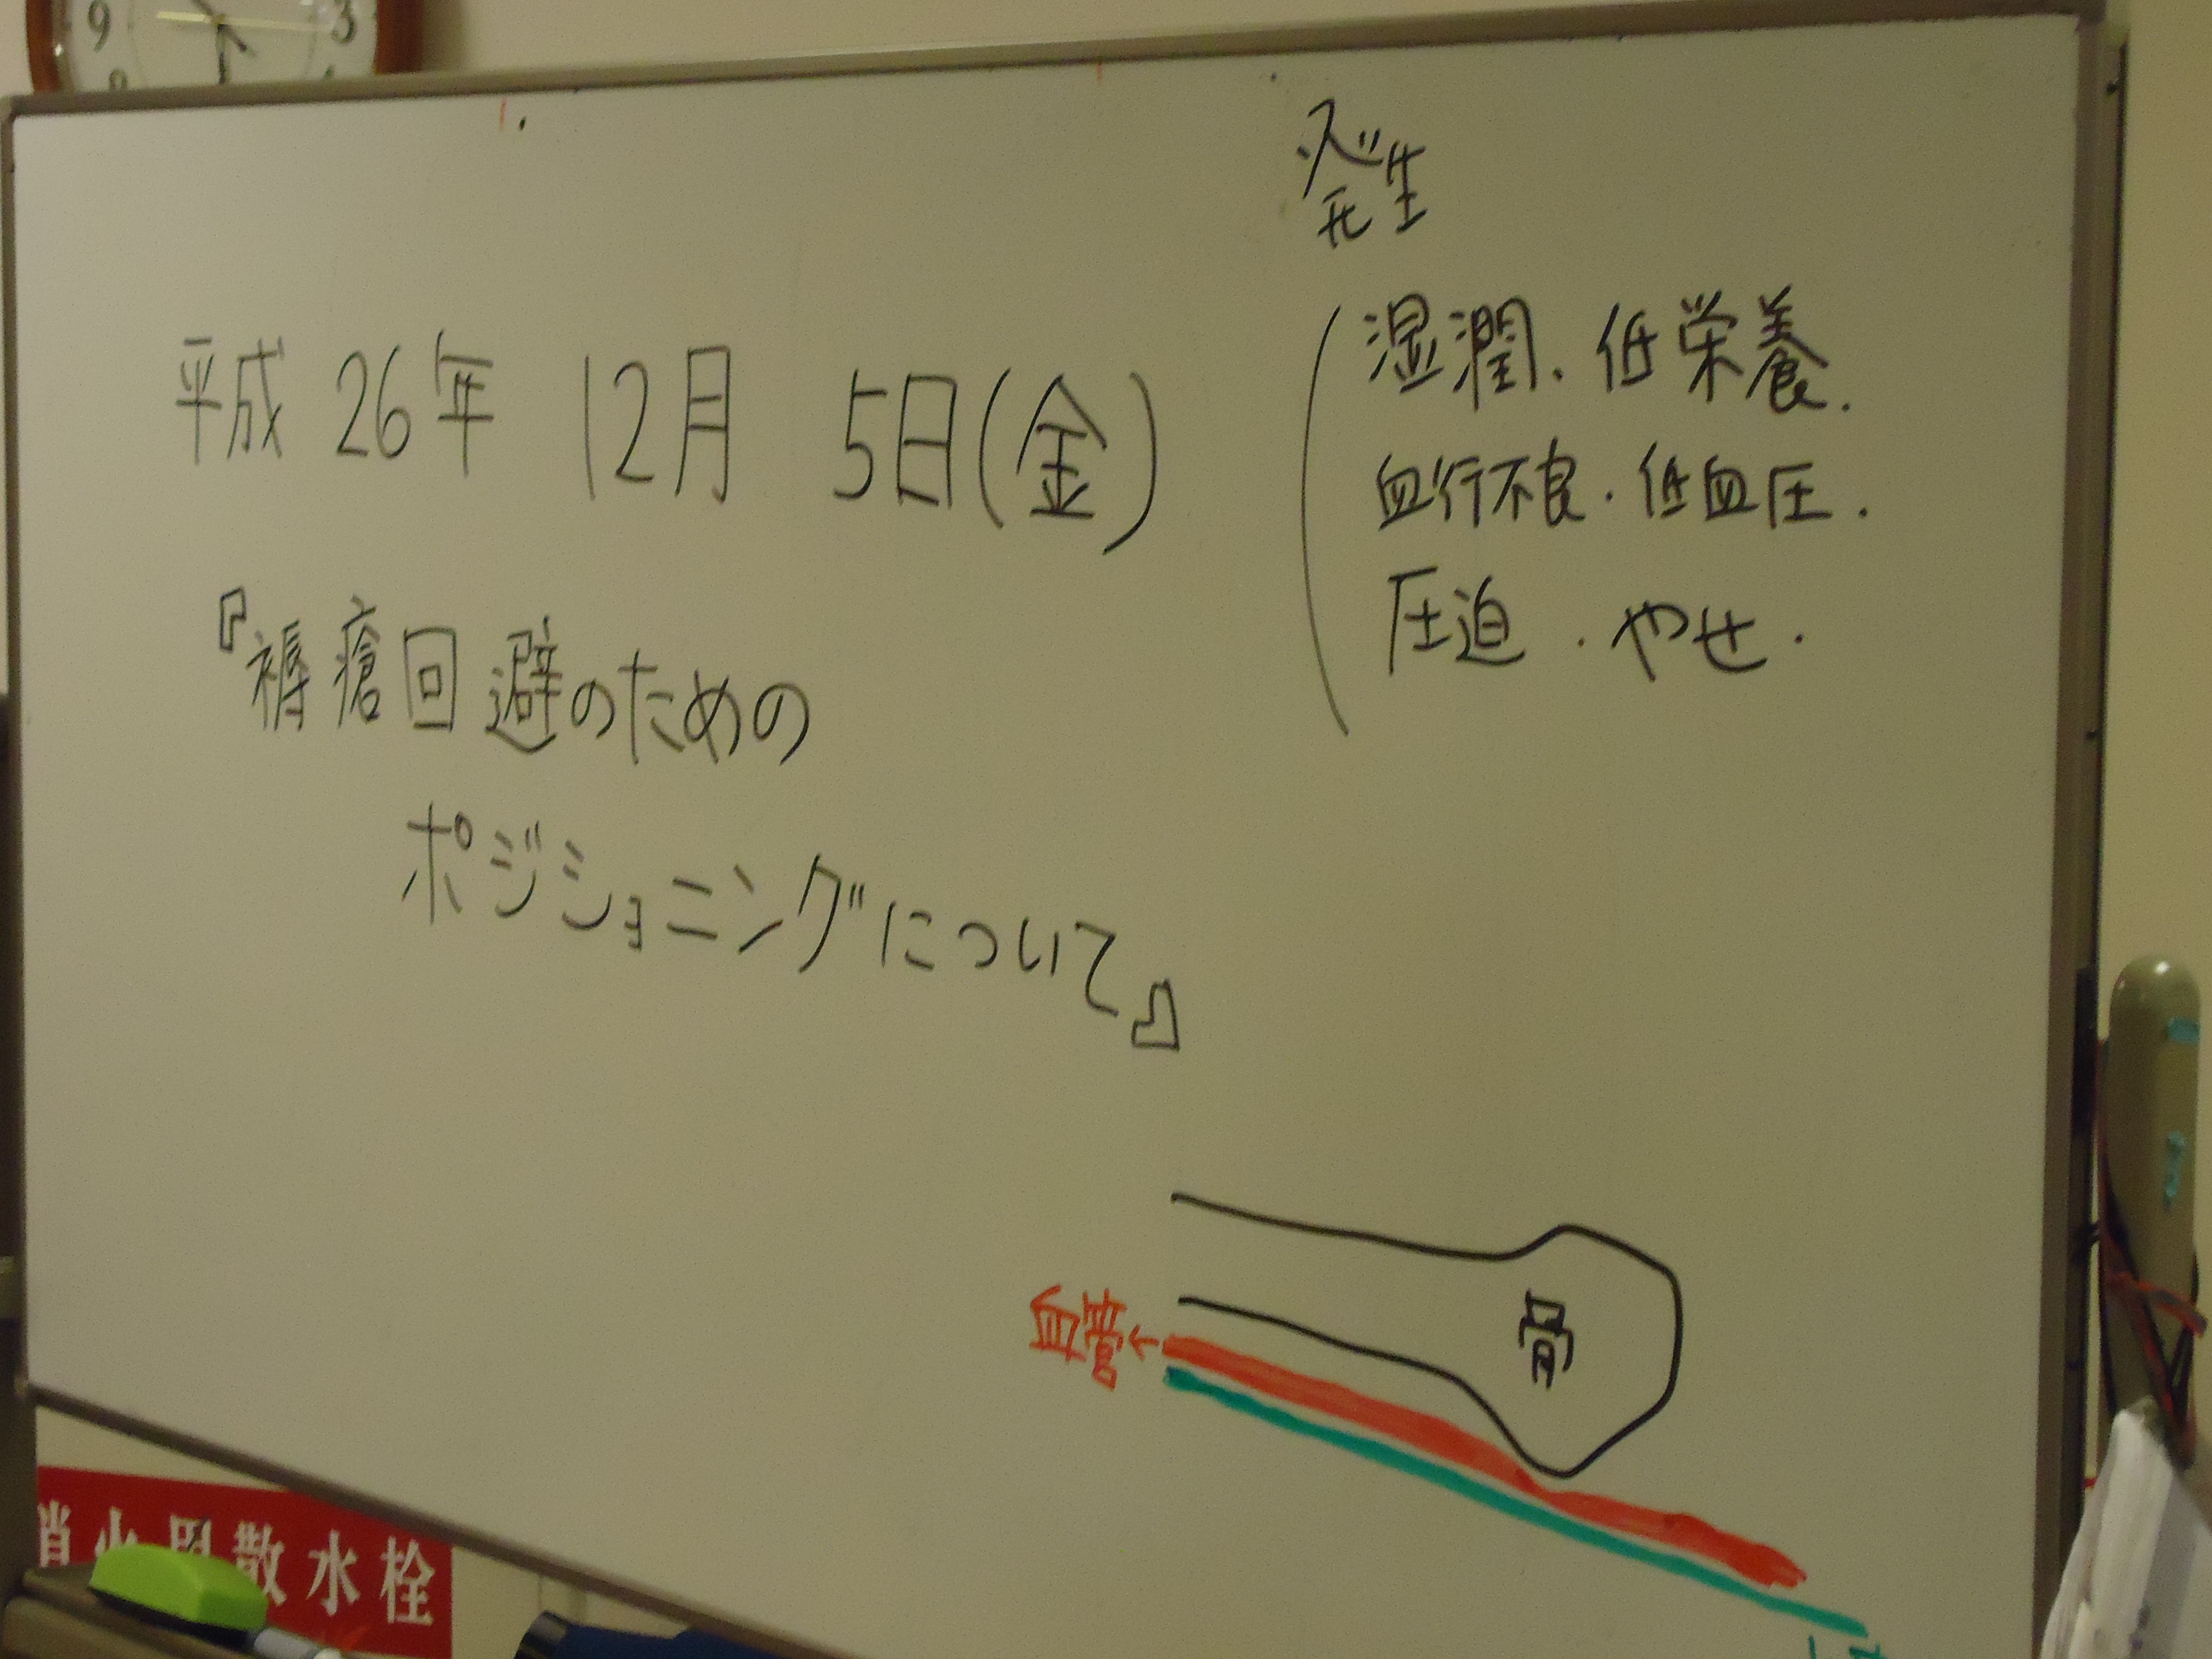 9 3
平成 26年 12月 5日(金)
『褥瘡回避のための
ポジショニングについて』
発生
湿潤、低栄養.
血行不良.低血圧.
圧迫.やせ.
骨
血管←
消火用散水栓